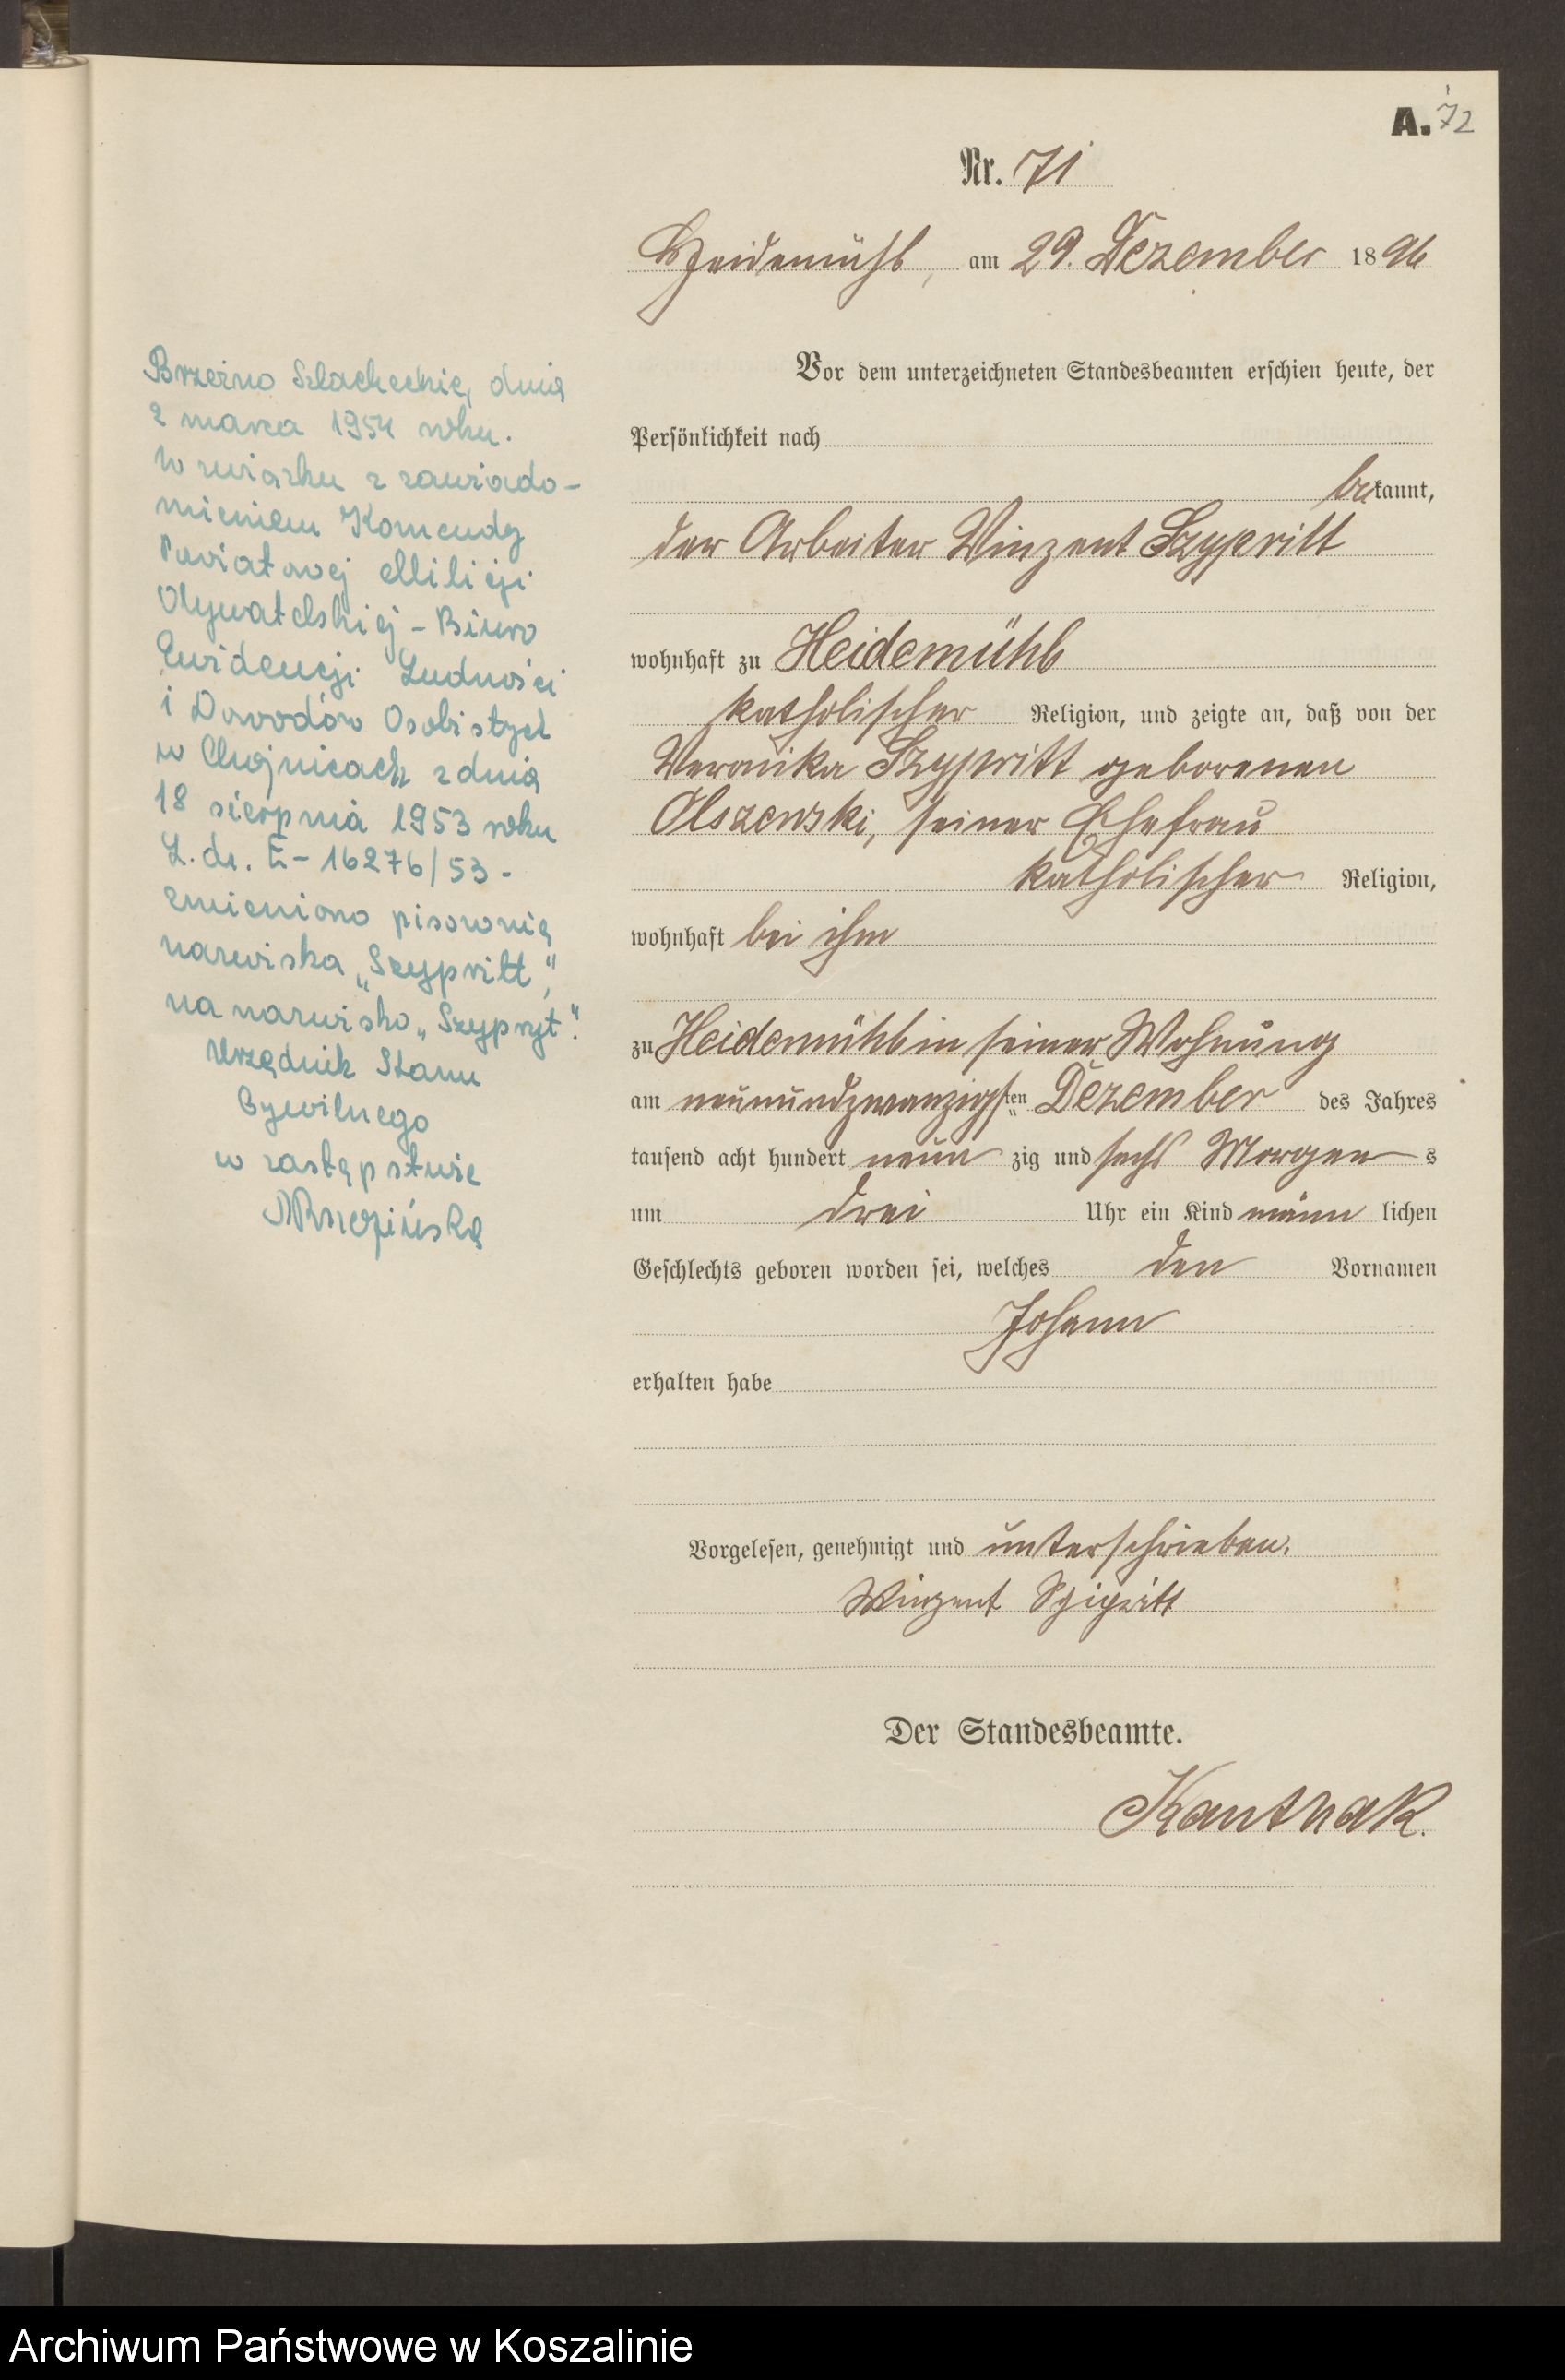 A. 72
Nr. 71
Heidemühl, am 29. Dezember 1896
Vor dem unterzeichneten Standesbeamten erschien heute, der
Persönlichkeit nach
bekannt,
der Arbeiter Winzent Szypritt
wohnhaft zu Heidemühl
katholischer Religion, und zeigte an, daß von der
Weronika Szypritt geborenen
Olszewski, seiner Ehefrau
katholischer Religion,
wohnhaft bei ihm
zu Heidemühl in seiner Wohnung
am neunundzwanzigsten Dezember des Jahres
tausend acht hundert neun zig und sechs Morgens
um drei Uhr ein Kind männ lichen
Geschlechts geboren worden sei, welches den Vornamen
Johann
erhalten habe
Vorgelesen, genehmigt und unterschrieben.
Winzent Szipritt
Der Standesbeamte.
Kantnak.
Brzeźno Szlacheckie, dnia
2 marca 1954 roku.
W związku z zawiado-
mieniem Komendy
Powiatowej Milicji
Obywatelskiej - Biuro
Ewidencji Ludności
i Dowodów Osobistych
w Chojnicach z dnia
18 sierpnia 1953 roku
L. dz. E-16276/53 -
zmieniono pisownię
nazwiska „Szypritt",
na nazwisko „Szypryt".
Urzędnik Stanu
Cywilnego
w zastępstwie
Archiwum Państwowe w Koszalinie